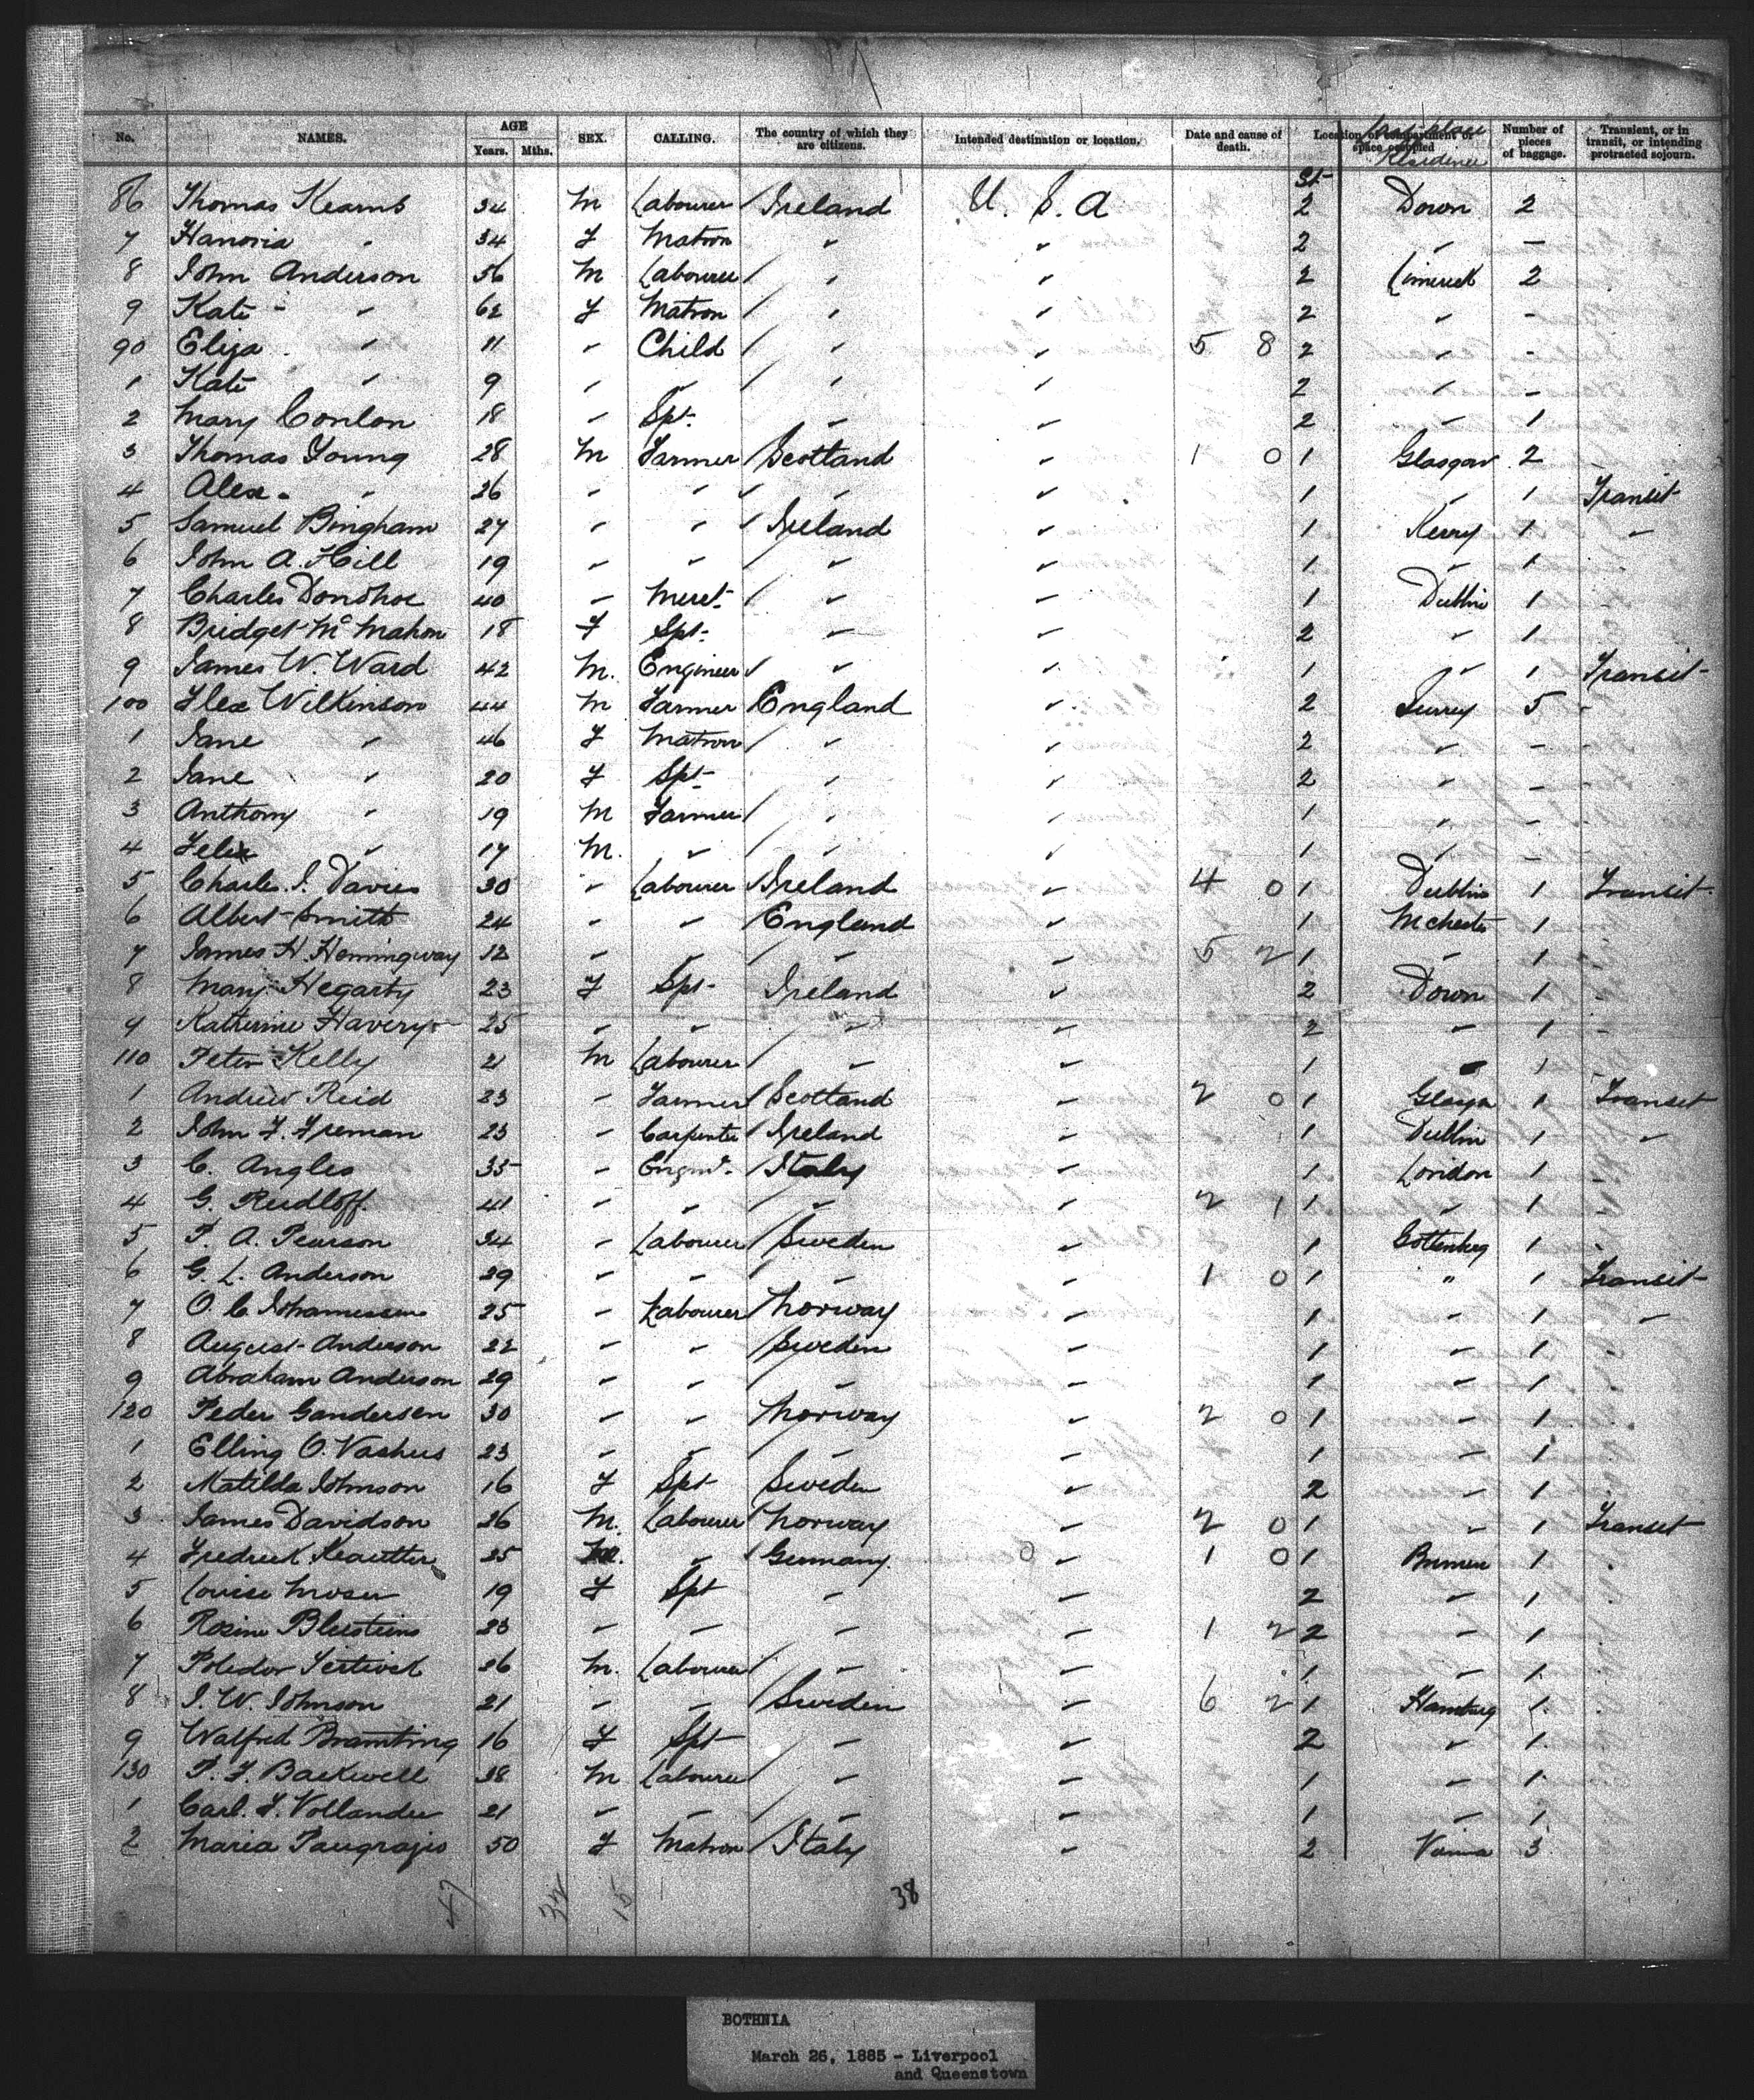 No. NAMES. AGE Years. Mths. SEX. CALLING. The country of which they are citizens. Intended destination or location. Date and cause of death. Location of compartment or space occupied Last place Residence Number of pieces of baggage. Transient, or in transit, or intending protracted sojourn.
St
86 Thomas Kearns 34 M Labourer Ireland U. S. A 2 Down 2
7 Hanoria " 34 F Matron " " 2 " -
8 John Anderson 56 M Labourer " " 2 Limerick 2
9 Kate " 62 F Matron " " 2 " -
90 Eliza " 11 " Child " " 5 8 2 " -
1 Kate " 9 " " " " 2 " -
2 Mary Conlon 18 " Spt. " " 2 " 1
3 Thomas Young 28 M Farmer Scotland " 1 0 1 Glasgow 2
4 Alex. " 26 " " " " 1 " 1 Transit
5 Samuel Bingham 27 " " Ireland " 1 Kerry 1 "
6 John A. Hill 19 " " " " 1 " 1
7 Charles Donohoe 40 " Merct. " " 1 Dublin 1
8 Bridget McMahon 18 F Spt. " " 2 " 1
9 James W. Ward 42 M. Engineer " " 1 " 1 Transit
100 Flex Wilkinson 44 M Farmer England " 2 Surrey 5
1 Jane " 46 F Matron " " 2 " -
2 Jane " 20 F Spt " " 2 " -
3 Anthony " 19 M Farmer " " 1 " -
4 Felix " 17 M. " " " 1 " -
5 Charles J. Davies 30 " Labourer Ireland " 4 0 1 Dublin 1 Transit
6 Albert Smith 24 " " England " 1 Mchester 1
7 James H. Hemingway 12 " " " " 5 2 1 " 1
8 Mary Hegarty 23 F Spt Ireland " 2 Down 1
9 Katherine Havery 25 " " " " 2 " 1
110 Peter Kelly 21 M Labourer " " 1 " 1
1 Andrew Reid 23 " Farmer Scotland " 2 0 1 Glasgow 1 Transit
2 John F. Freman 23 " Carpenter Ireland " 1 Dublin 1 "
3 C. Angles 35 " Italy " 1 London 1
4 G. Rudloff 41 " " " " 2 1 1 " 1
5 P. A. Pearson 34 " Labourer Sweden " 1 Gottenberg 1
6 G. L. Anderson 29 " " " " 1 0 1 " 1 Transit
7 O. C Johannessen 25 " Labourer Norway " 1 " 1 "
8 August Anderson 22 " " Sweden " 1 " 1
9 Abraham Anderson 29 " " " " 1 " 1
120 Peder Gandersen 30 " " Norway " 2 0 1 " 1
1 Elling O. Vashus 23 " " " " 1 " 1
2 Matilda Johnson 16 F Spt Sweden " 2 " 1
3 James Davidson 26 M. Labourer Norway " 2 0 1 " 1 Transit
4 Fredrick 25 M. " Germany 0 " 1 0 1 Bremen 1
5 Louise Moser 19 F Spt " " 2 " 1
6 Rosine 23 " " " " 1 2 2 " 1
7 26 M. Labourer " " 1 " 1
8 J. W. Johnson 21 " " Sweden " 6 2 1 Hamburg 1
9 Walfred Bramting 16 F Spt " " 2 " 1
130 P. F. Backwell 38 M Labourer " " 1 " 1
1 Carl. F. Vollander 21 " " " " 1 " 1
2 Maria 50 F Matron Italy " 2 3
47 32 15 38
BOTHNIA
March 26, 1885 - Liverpool
and Queenstown